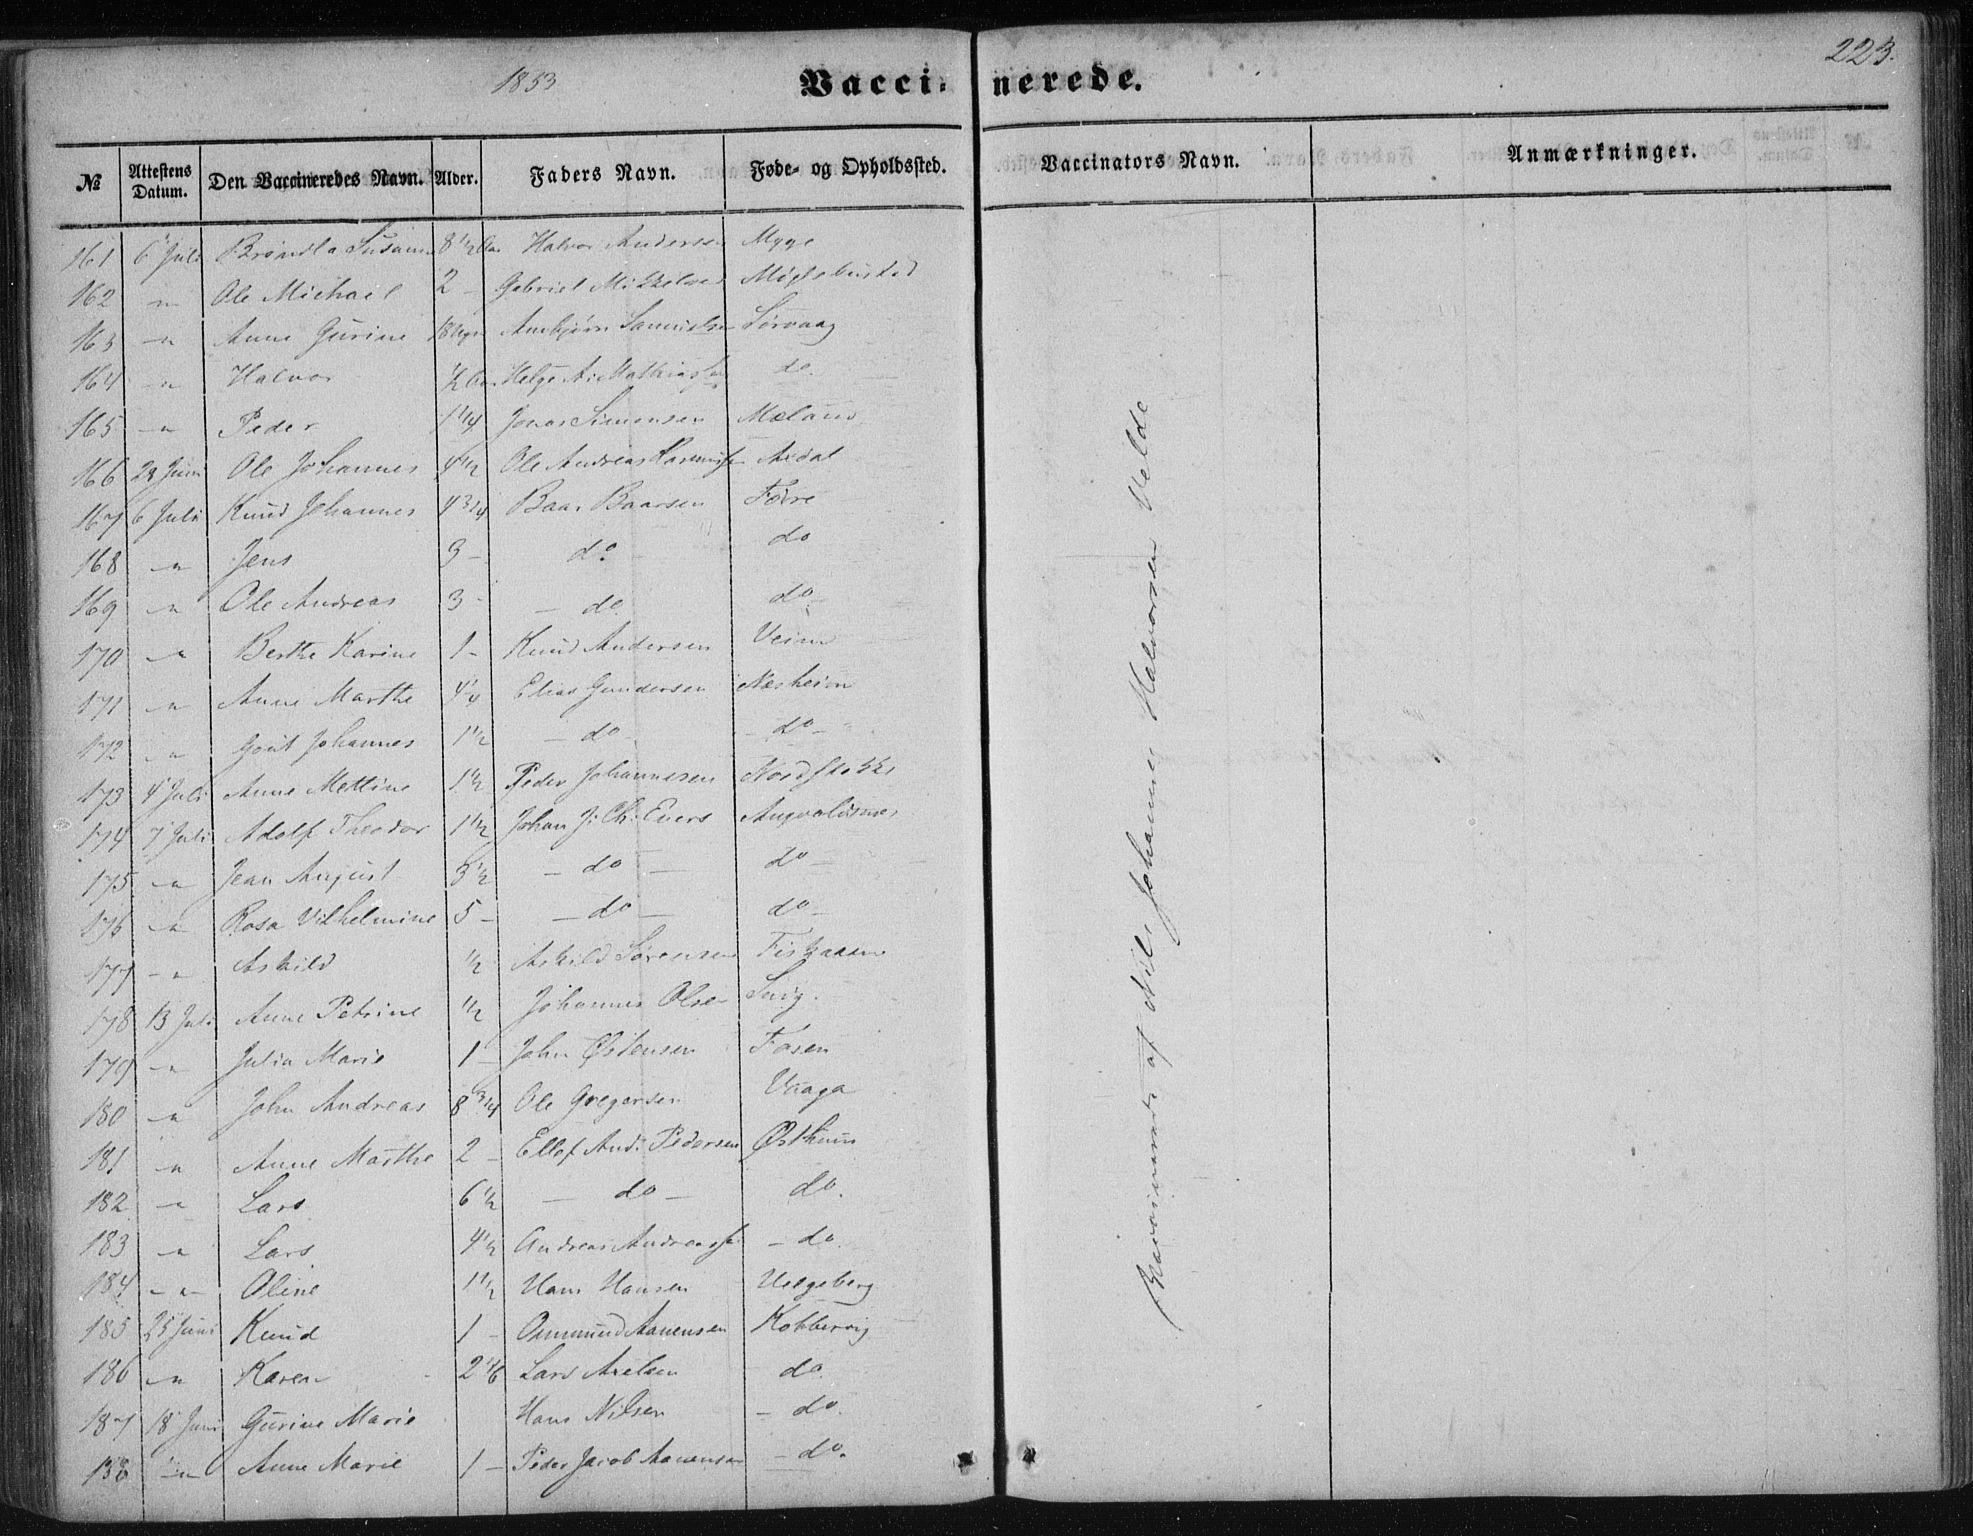 1853 Vacci- nerede. 223.
№ Attestens Datum. Den Vaccineredes Navn. Alder. Faders Navn. Føde- og Opholdssted. Vaccinators Navn. Anmærkninger.
161 6 Juli Halvor Andersen Myge
162 -"- Ole Michail 2 - Gabriel Mikkelsen
163 -"- Anne Gurine Sørvaag
164 -"- Halvor 1/2 Helge A. Mathiassen do
165 -"- Peder 1 1/4 Jonas Simonsen Mæland
166 Ole Johannes 4 1/2 Ole Andreas Rasmussen
167 6 Juli Knud Johannes 4 3/4 Baar Baarsen Førre
168 -"- Jens 3 - do do
169 -"- Ole Andreas 3 - - do do
170 -"- Berthe Karine 1 - Knud Andersen
171 -"- Anne Marthe 4 1/4 Elias Gundersen Nesheim
172 -"- Gout Johannes 1 1/2 - do - - do -
173 4 Juli Anne Mettine 1 1/2 Peder Johannesen Nordstokke
174 7 Juli Adolf Theodor 1 1/2 Johan J. Ch. Evers Augvaldsnes
175 -"- Jean August 3 1/2 - do - do -
176 -"- Rosa Vilhelmine 5 - - do - do -
177 -"- Askild 1/2 Askild Sørensen Fiskaaen
178 13 Juli Anne Petrine 1/2 Johannes Olsen
179 -"- Julia Marie 1 - John Østensen Fosen
180 -"- John Andreas 8 3/4 Ole Gregersen Vaaga
181 -"- Anne Marthe 2 - Ellef And. Pedersen Østhuus
182 -"- Lars 6 1/2 - do - do.
183 -"- Lars 4 1/2 Andreas Andreassen - do.
184 -"- Oline 1 1/2 Hans Hansen Helgeberg
185 25 Juni Knud 1 - Osmund Aanensen Kobbervig
186 -"- Karen 2 Lars do.
187 18 Juni Gurine Marie Hans Nilsen - do.
188 -"- Anne Marie 1 - Peder Jacob Aanensen - do.
af Nils Johannes Halvorsen Velde